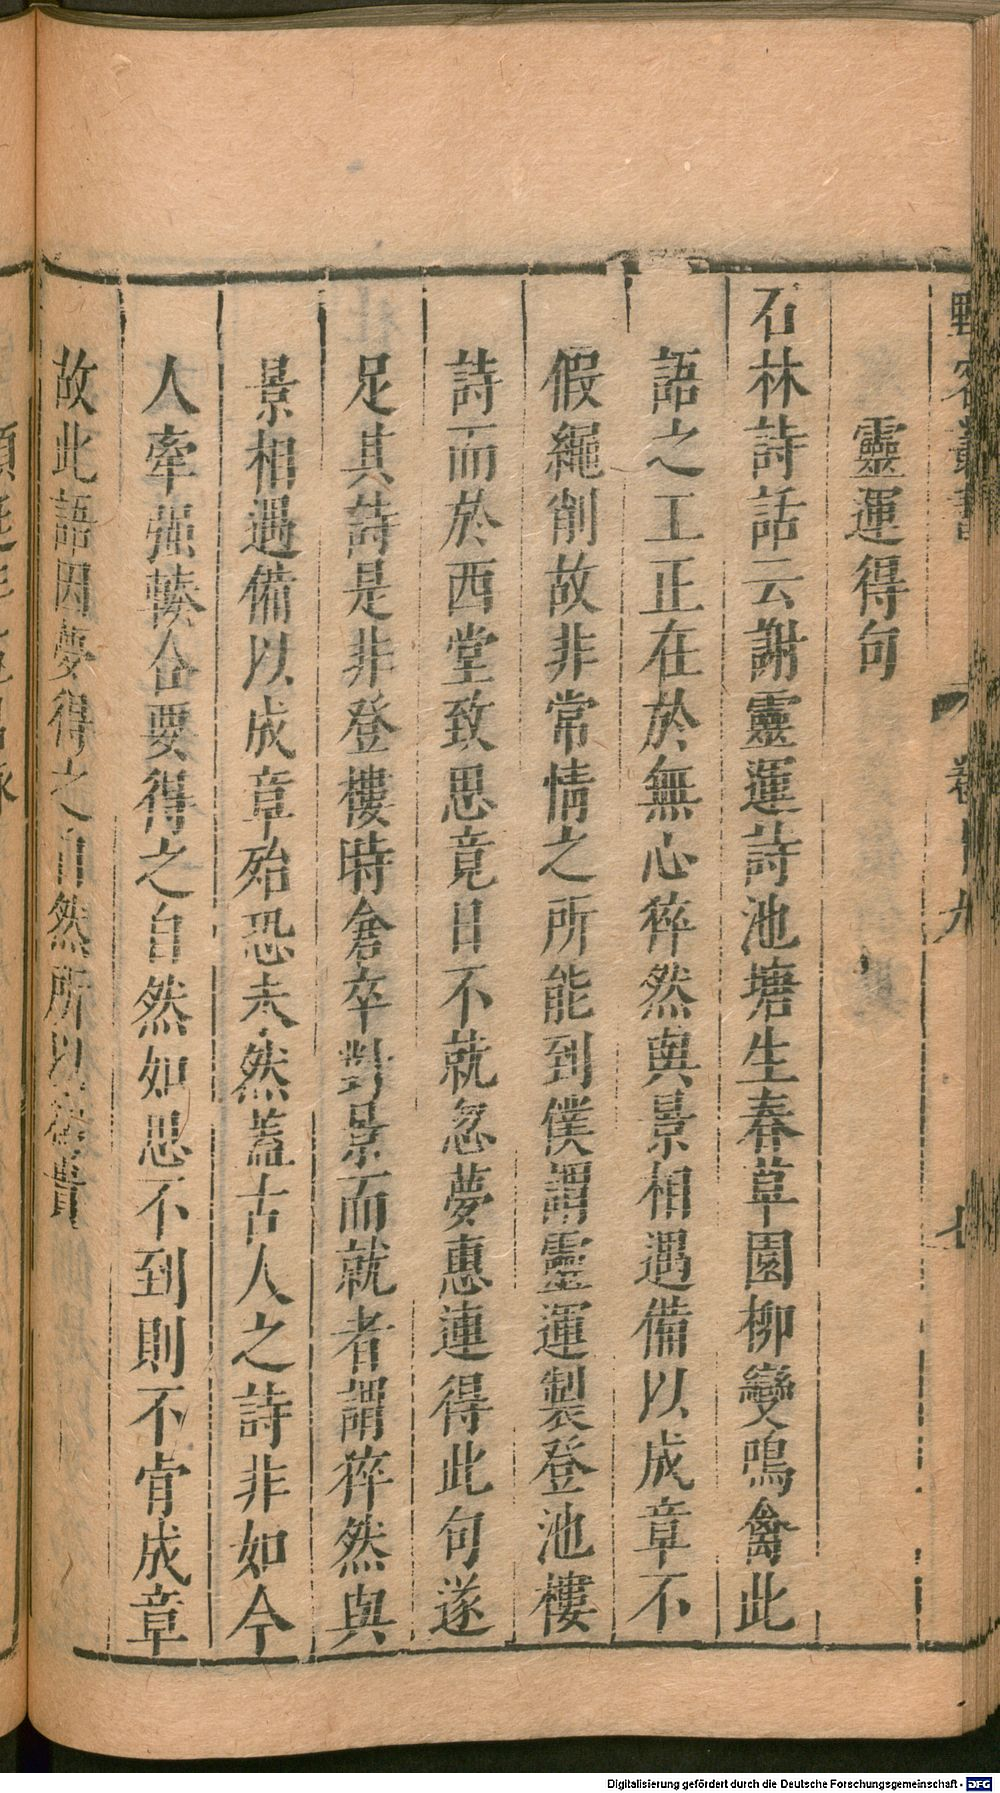 野客叢書 卷十九 七
靈運得句
石林詩話云謝靈運詩池塘生春草園柳變鳴禽此
語之工正在於無心猝然與景相遇備以成章不
假繩削故非常情之所能到僕謂靈運製登池樓
詩而於西堂致思竟日不就忽夢惠連得此句遂
足其詩是非登樓時倉卒對景而就者謂猝然與
景相遇備以成章殆恐未然蓋古人之詩非如今
人牽强輳合要得之自然如思不到則不肯成章
故此語因夢得之自然所以爲貴
Digitalisierung gefördert durch die Deutsche Forschungsgemeinschaft - DFG